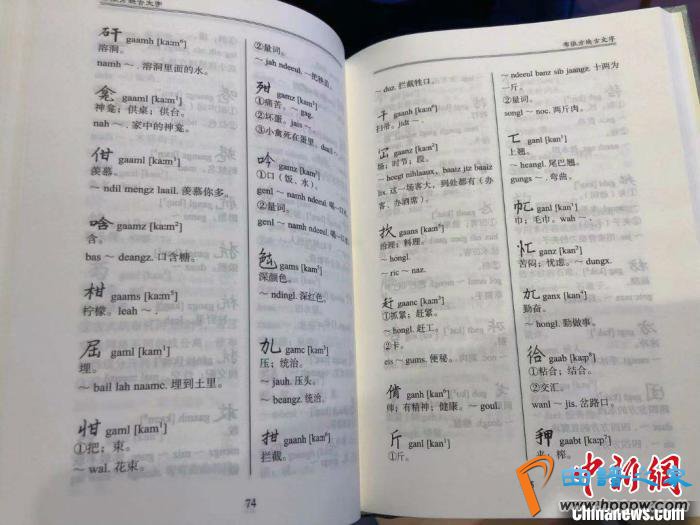 方块古文字
矸 gaamh [ka:m⁶]
溶洞。
namh ～. 溶洞里面的水。
龛 gaaml [ka:m¹]
神龛；供桌；供台。
nah ～. 家中的神龛。
佄 gaaml [ka:m¹]
羡慕。
～ ndil mengz laail. 羡慕你多。
唅 gaamz [ka:m²]
含。
bas ～ deangz. 口含糖。
柑 gaams [ka:m³]
柠檬。leah ～.
屈 gaml [kam¹]
埋。
～ bail lah naamc. 埋到土里。
咁 gaml [kam¹]
①把；束。
～ wal. 花束。
②量词。
～ jah ndeeul.
gamz [kam²]
①痛苦。～ gag.
②坏蛋。jais ～.
③小禽死在蛋里。
吟 gamz [kam²]
①口（饭、水）。
genl ～ namh ndeeul
②量词。
genl ～ namh ndeeul
gams [kam³]
深颜色。
～ ndingl. 深红色。
gamc [kam⁴]
压；统治。
～ jauh. 压头。
～ beangz. 统治。
拑 gaanh [ka:n⁶]
拦截。
74
布依方块古文字
～ duz. 拦截牲口。
干 gaanh [ka:n⁶]
扫帚。jidt ～.
gaanz [ka:n²]
场；时节；段。
～ hegt nihlaaux, baaiz jtz baaiz
lix. 这一场客大，到处都有（办
客、办酒席）。
gaans [ka:n³]
治理；料理。
～ hongl
～ ric ～ naz.
赶 gaanc [ka:n⁴]
①抓紧；赶紧。
～ hongl. 赶工。
②卡。
eis ～ gums. 便秘。
倄 ganh [kan⁶]
帅；有精神；健康。～ goul.
斤 ganl [kan¹]
①斤。
～ ndeeul banz sib jaangz. 十两为
一斤。
②量词。
songl ～ noc. 两斤肉。
ganl [kan¹]
上翘。
～ heangl. 尾巴翘。
gungs ～. 弯曲。
ganl [kan¹]
巾；毛巾。wah ～.
忙 ganz [kan²]
苦闷；忧虑。～ dungx.
ganx [kan⁴]
勤奋。
～ hongl. 勤做事。
gaab [ka:p⁸]
①粘合；结合。
②交汇。
wanl ～ jis. 岔路口。
gaabt [ka:p⁷]
夹；榨。
中新网
曲谱之家
www.hoppw.com
Chinanews.com